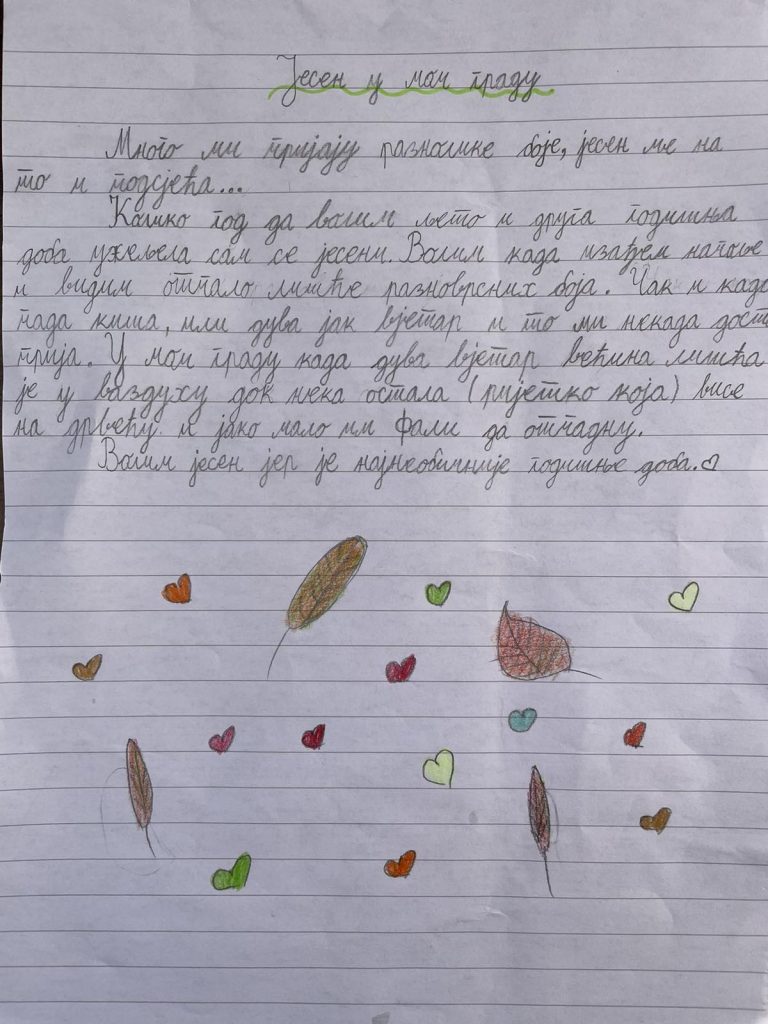 Јесен у мом граду
Много ми пријају разнолике боје, јесен ме на
то и подсјећа...
Колико год да волим љето и друга годишња
доба ужељела сам се јесени. Волим када изађем напоље
и видим отпало лишће разноврсних боја. Чак и када
пада киша, или дува јак вјетар и то ми некада доста
прија. У мом граду када дува вјетар већина лишћа
је у ваздуху док нека остала (ријетко која) висе
на дрвећу и јако мало им фали да отпадну.
Волим јесен јер је најнеобичније годишње доба.